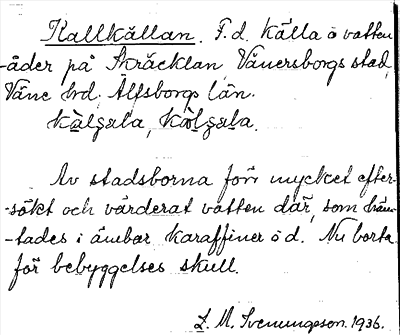 Kallkällan. F.d. källa å vatten
-åder på Skräcklan Vänersborgs stad,
Väne hd. Älfsborgs län.
Av stadsborna förr mycket efter-
-sökt och värderat vatten där, som häm-
-tades i ämbar karaffiner o d. Nu borta
för bebyggelses skull.
L. M. Svenungsson. 1936.